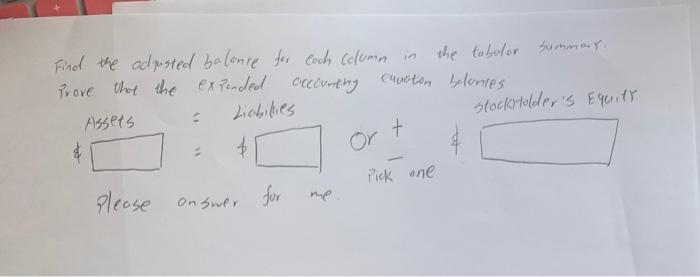 Find the adjusted balance for each column in the tabular summary.
Prove that the expended accounting equation balances
Assets = Liabilities Stockholder's Equity
$ = $ Or + - $
Pick one
Please answer for me.